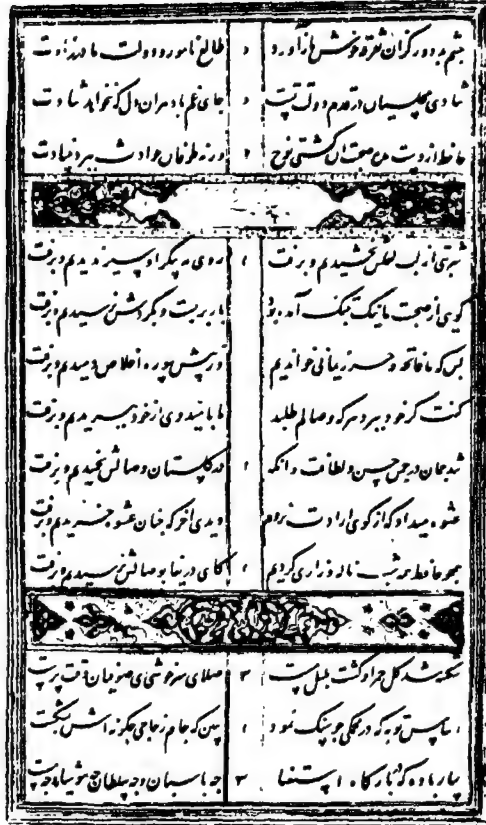 چشم بد دور کزان تفرقه خوش بازآورد طالع نامور و دولت مادرزادت
شادی مجلسیان در قدم و دولت تست جای غم باد هران دل که نخواهد شادت
حافظ از دست مده صحبت آن کشتی نوح ورنه طوفان حوادث ببرد بنیادت
شربتی از لب لعلش نچشیدیم و برفت روی مه پیکر او سیر ندیدیم و برفت
گویی از صحبت ما نیک بتنک آمده بود بار بربست و بگردش نرسیدیم و برفت
بس که ما فاتحه و حرز یمانی خواندیم وز پیش سوره اخلاص دمیدیم و برفت
گفت کز خود ببرد هر که وصالم طلبد ما بامید وی از خود ببریدیم و برفت
شد چمان در چمن حسن و لطافت وانگه در گلستان وصالش نچمیدیم و برفت
عشوه میداد که از کوی ارادت نروم دیدی آخر که چنان عشوه خریدیم و برفت
همچو حافظ همه شب ناله و زاری کردیم کای دریغا بوصالش نرسیدیم و برفت
شکفته شد گل حمرا و گشت بلبل مست صلای سرخوشی ای صوفیان وقت پرست
اساس توبه که در محکمی چو سنگ نمود ببین که جام زجاجی چگونه اش بشکست
بیار باده که در بارگاه استغنا چه پاسبان و چه سلطان چه هوشیار چه مست